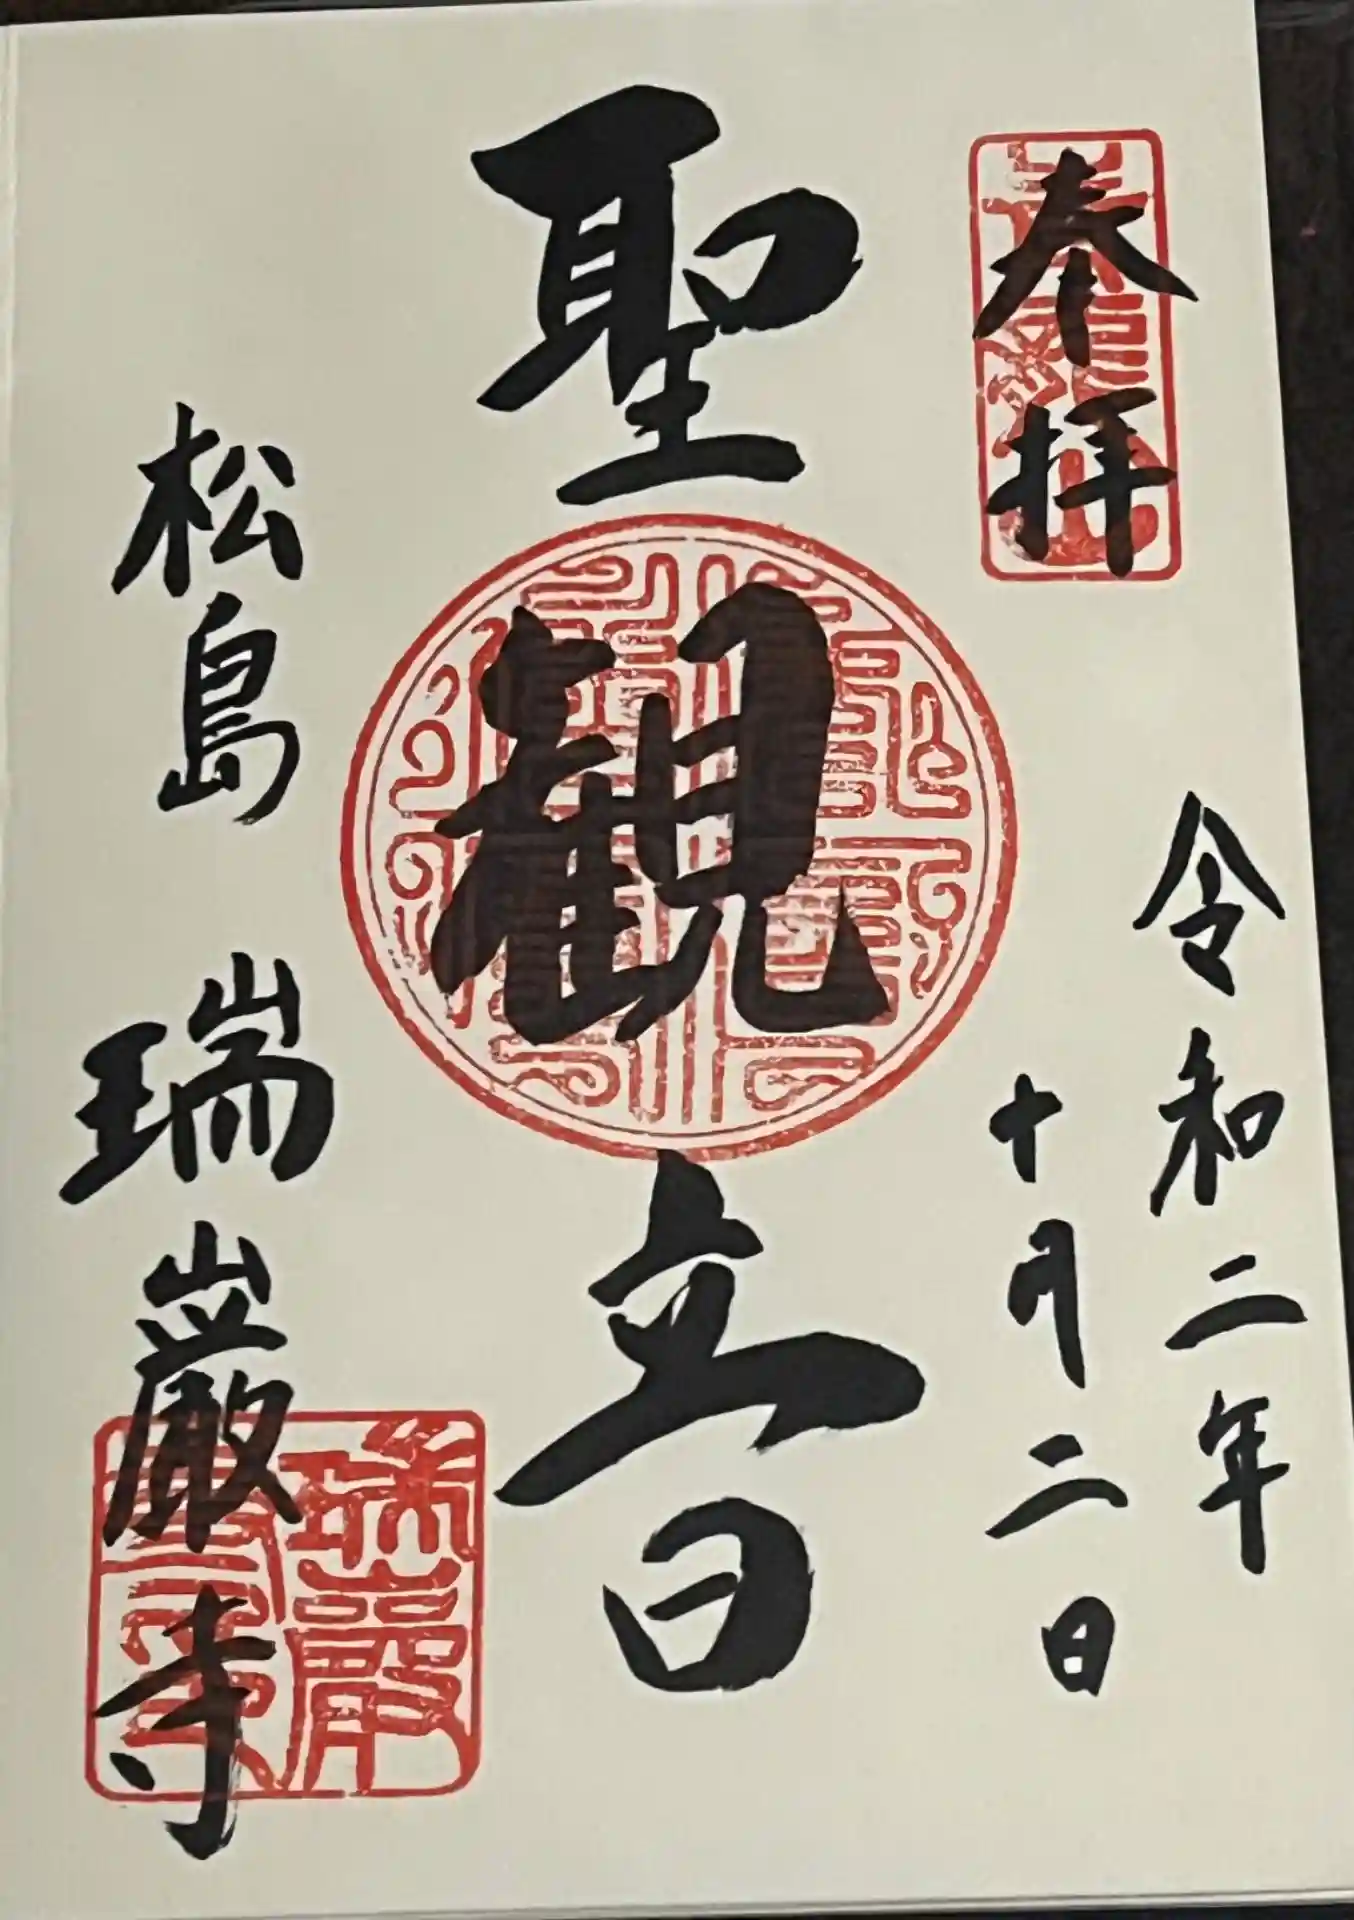 奉拝
令和二年
十月二日
聖観音
松島 瑞巌寺